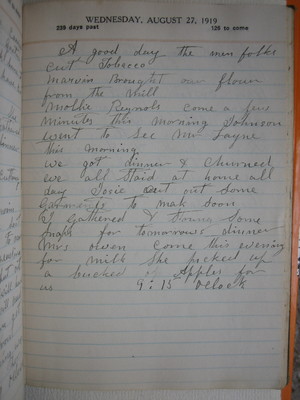 WEDNESDAY, AUGUST 27, 1919
239 days past 126 to come
A good day the men folks
cut Tobacco
Marvin brought our flour
from the Mill
Mollie Reynols come a few
minutes this morning Johnson
went to see Mr Layne
this morning
we got dinner & Churned
we all staid at home all
day Josie cut out some
Garments to mak soon
I gathered & some
snaps for tomorrows dinner
Mrs Owen come this evening
for milk She picked up
a bucked of Apples for
us 9:15 Oclock